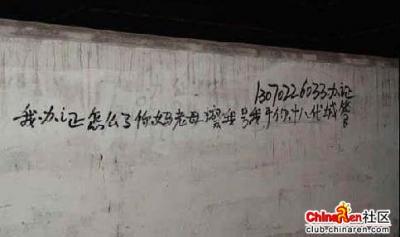 13070226033办证
我办证怎么了你妈老母 我号我干你十八代城管
ChinaRen社区
club.chinaren.com